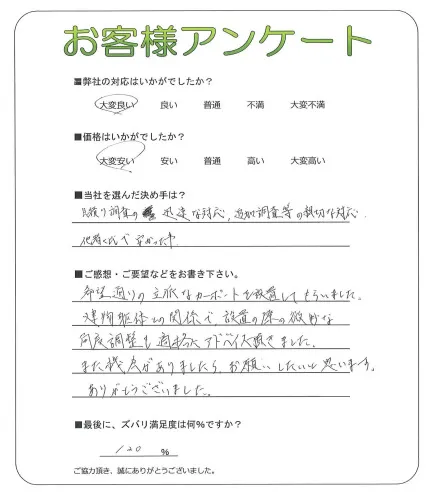 お客様アンケート
■弊社の対応はいかがでしたか？
大変良い 良い 普通 不満 大変不満
■価格はいかがでしたか？
大変安い 安い 普通 高い 大変高い
■当社を選んだ決め手は？
見積り調査の 迅速な対応, 追加調査等の親切な対応.
安かった事
■ご感想・ご要望などをお書き下さい。
希望通りの立派なカーポートを設置してもらいました。
建物躯体との関係で、設置の際の微妙な
角度調整も適切にアドバイス頂きました。
また機会がありましたら、お願いしたいと思います。
ありがとうございました。
■最後に、ズバリ満足度は何%ですか？
120 %
ご協力頂き、誠にありがとうございました。